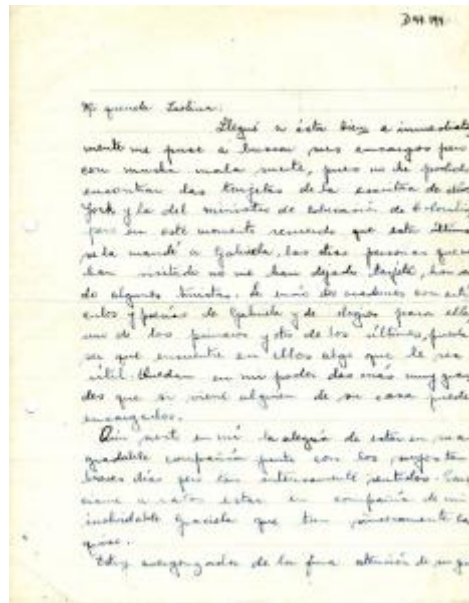 Mi querida Lastenia:
Llegué a ésta bien e inmediata
mente me puse a buscar sus encargos pero
con mucha mala suerte, pues no he podido
encontrar las tarjetas de la escritora de
York y la del ministro de educación de Colombia
pero en este momento recuerdo que esta última
se la mandé a Gabriela, las otras personas que
han visitado no me han dejado tarjeta, han
do algunos turistas. Le envío dos cuadernos con
culos y poesías de Gabriela y de elogios para ella
uno de los primeros y otro de los últimos, puede
ser que encuentre en ellos algo que le sea
útil. Quedan en mi poder dos más muy gran
des que si viene alguien de su casa puede
encargarlos.
Aún está en mí la alegría de estar en su a
gradable compañía junto con los suyos tan
breves días pero tan intensamente sentidos.
a ratos estar en compañía de mi
inolvidable Graciela que tan sinceramente
quise.
Estoy avergonzada de la fina atención de